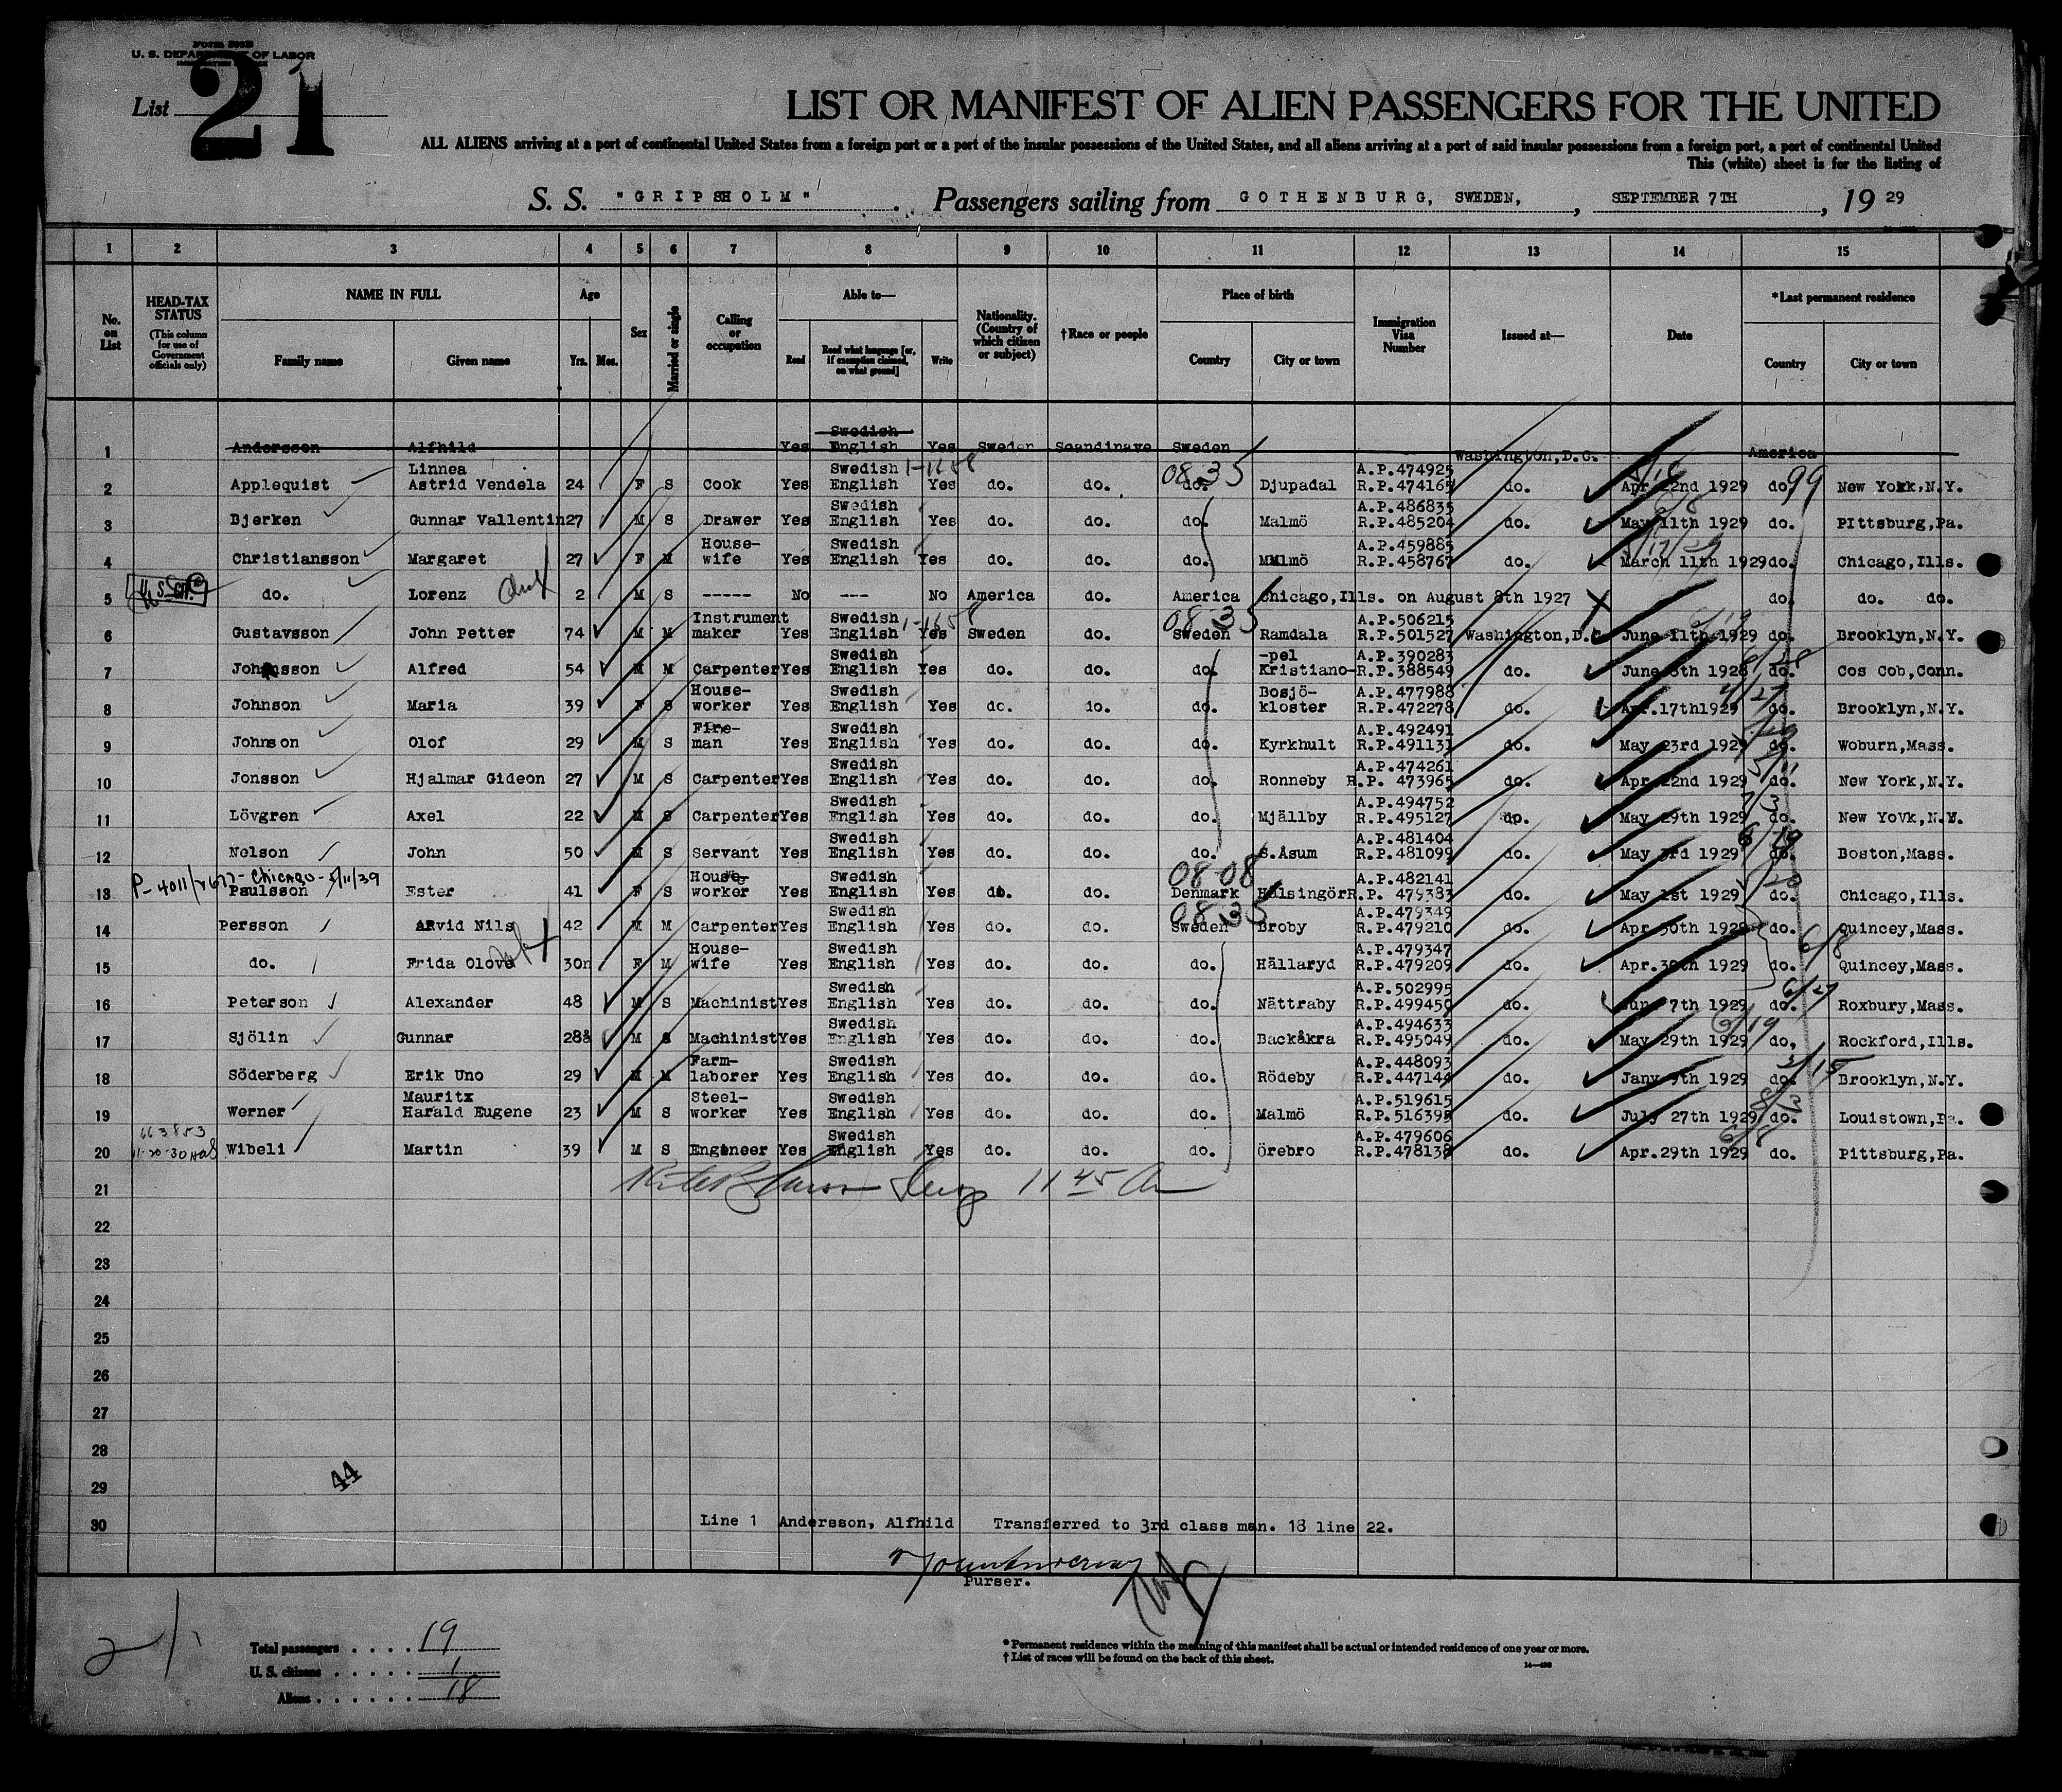 Form 500B
U. S. DEPARTMENT OF LABOR
List 21
LIST OR MANIFEST OF ALIEN PASSENGERS FOR THE UNITED
ALL ALIENS arriving at a port of continental United States from a foreign port or a port of the insular possessions of the United States, and all aliens arriving at a port of said insular possessions from a foreign port, a port of continental United
This (white) sheet is for the listing of
S. S. "GRIPSHOLM" . Passengers sailing from GOTHENBURG, SWEDEN, , SEPTEMBER 7TH , 19 29
1 2 3 4 5 6 7 8 9 10 11 12 13 14 15
No. on List
HEAD-TAX STATUS (This column for use of Government officials only)
NAME IN FULL Family name Given name
Age Yrs. Mos.
Sex
Married or single
Calling or occupation
Able to— Read Read what language [or, if exemption claimed, on what ground] Write
Nationality. (Country of which citizen or subject)
†Race or people
Place of birth Country City or town
Immigration Visa Number
Issued at—
Date
*Last permanent residence Country City or town
1 Andersson Alfhild Yes Swedish English Yes Sweden Scandinave Sweden Washington,D.C. America
2 Applequist Linnea Astrid Vendela 24 F S Cook Yes Swedish English 1-1658 Yes do. do. 08.35 do. Djupadal A.P.474925 R.P.474165 do. Apr. 22nd 1929 do. 99 New York,N.Y.
3 Bjerken Gunnar Vallentin 27 M S Drawer Yes Swedish English Yes do. do. do. Malmö A.P.486835 R.P.485204 do. May 11th 1929 6/8 do. PIttsburg,Pa.
4 Christiansson Margaret 27 F M House-wife Yes Swedish English Yes do. do. do. MMlmö A.P.459885 R.P.458767 do. March 11th 1929 do. Chicago,Ills.
5 U.S. CIT. do. Lorenz 2 M S ----- No --- No America do. America Chicago,Ills. on August 8th 1927 X do. do. do.
6 Gustavsson John Petter 74 M M Instrument maker Yes Swedish English 1-1658 Yes Sweden do. 08-35 Sweden Ramdala A.P.506215 R.P.501527 Washington,D.C June 11th 1929 do. Brooklyn,N.Y.
7 Johnsson Alfred 54 M M Carpenter Yes Swedish English Yes do. do. do. Kristiano-pel A.P.390283 R.P.388549 do. June 8th 1928 do. Cos Cob,Conn.
8 Johnson Maria 39 F S House-worker Yes Swedish English Yes do. do. do. Bosjö-kloster A.P.477988 R.P.472278 do. Apr.17th1929 4/27 do. Brooklyn,N.Y.
9 Johnson Olof 29 M S Fire-man Yes Swedish English Yes do. do. do. Kyrkhult A.P.492491 R.P.491131 do. May 23rd 1929 do. Woburn,Mass.
10 Jonsson Hjalmar Gideon 27 M S Carpenter Yes Swedish English Yes do. do. do. Ronneby A.P.474261 R.P. 473965 do. Apr. 22nd 1929 5/11 do. New York,N.Y.
11 Lövgren Axel 22 M S Carpenter Yes Swedish English Yes do. do. do. Mjällby A.P.494752 R.P.495127 do. May 29th 1929 7/3 do. New YoVk,N.Y.
12 Nelson John 50 M S Servant Yes Swedish English Yes do. do. do. S.Åsum A.P.481404 R.P.481099 do. May 3rd 1929 6/19 do. Boston,Mass.
P-4011/ Chicago - 5/11/39
13 Paulsson Ester 41 F S House-worker Yes Swedish English Yes do. do. 08-08 Denmark Hälsingör A.P.482141 R.P. 479383 do. May 1st 1929 do. Chicago,Ills.
14 Persson ARvid Nils 42 M M Carpenter Yes Swedish English Yes do. do. 08.35 Sweden Broby A.P.479349 R.P.479210 do. Apr 30th 1929 do. Quincey,Mass.
15 do. Frida Olove 30 F M House-wife Yes Swedish English Yes do. do. do. Hällaryd A.P.479347 R.P.479209 do. Apr.30th 1929 do. 6/8 Quincey,Mass.
16 Peterson Alexander 48 M S Machinist Yes Swedish English Yes do. do. do. Nättraby A.P.502995 R.P.499450 do. Jun. 7th 1929 do. 6/27 Roxbury,Mass.
17 Sjölin Gunnar 28 M S Machinist Yes Swedish English Yes do. do. do. Backåkra A.P.494633 R.P.495049 do. May 29th 1929 6/19 do. Rockford,Ills.
18 Söderberg Erik Uno 29 M M Farm-laborer Yes Swedish English Yes do. do. do. Rödeby A.P.448093 R.P.447144 do. Jany 9th 1929 do. Brooklyn,N.Y.
19 Werner Mauritx Harald Eugene 23 M S Steel-worker Yes Swedish English Yes do. do. do. Malmö A.P.519615 R.P.516395 do. July 27th 1929 8/3 do. Louistown,Pa.
663853
11-20-30
20 Wibeli Martin 39 M S Engeneer Yes Swedish English Yes do. do. do. Örebro A.P.479606 R.P.478138 do. Apr.29th 1929 6/8 do. Pittsburg,Pa.
21 11 45
22
23
24
25
26
27
28
29
44
30 Line 1 Andersson, Alfhild Transferred to 3rd class man. 18 line 22.
Purser.
21
Total passengers . . . . 19
U. S. citizens . . . . . 1
Aliens . . . . . . 18
* Permanent residence within the meaning of this manifest shall be actual or intended residence of one year or more.
† List of races will be found on the back of this sheet.